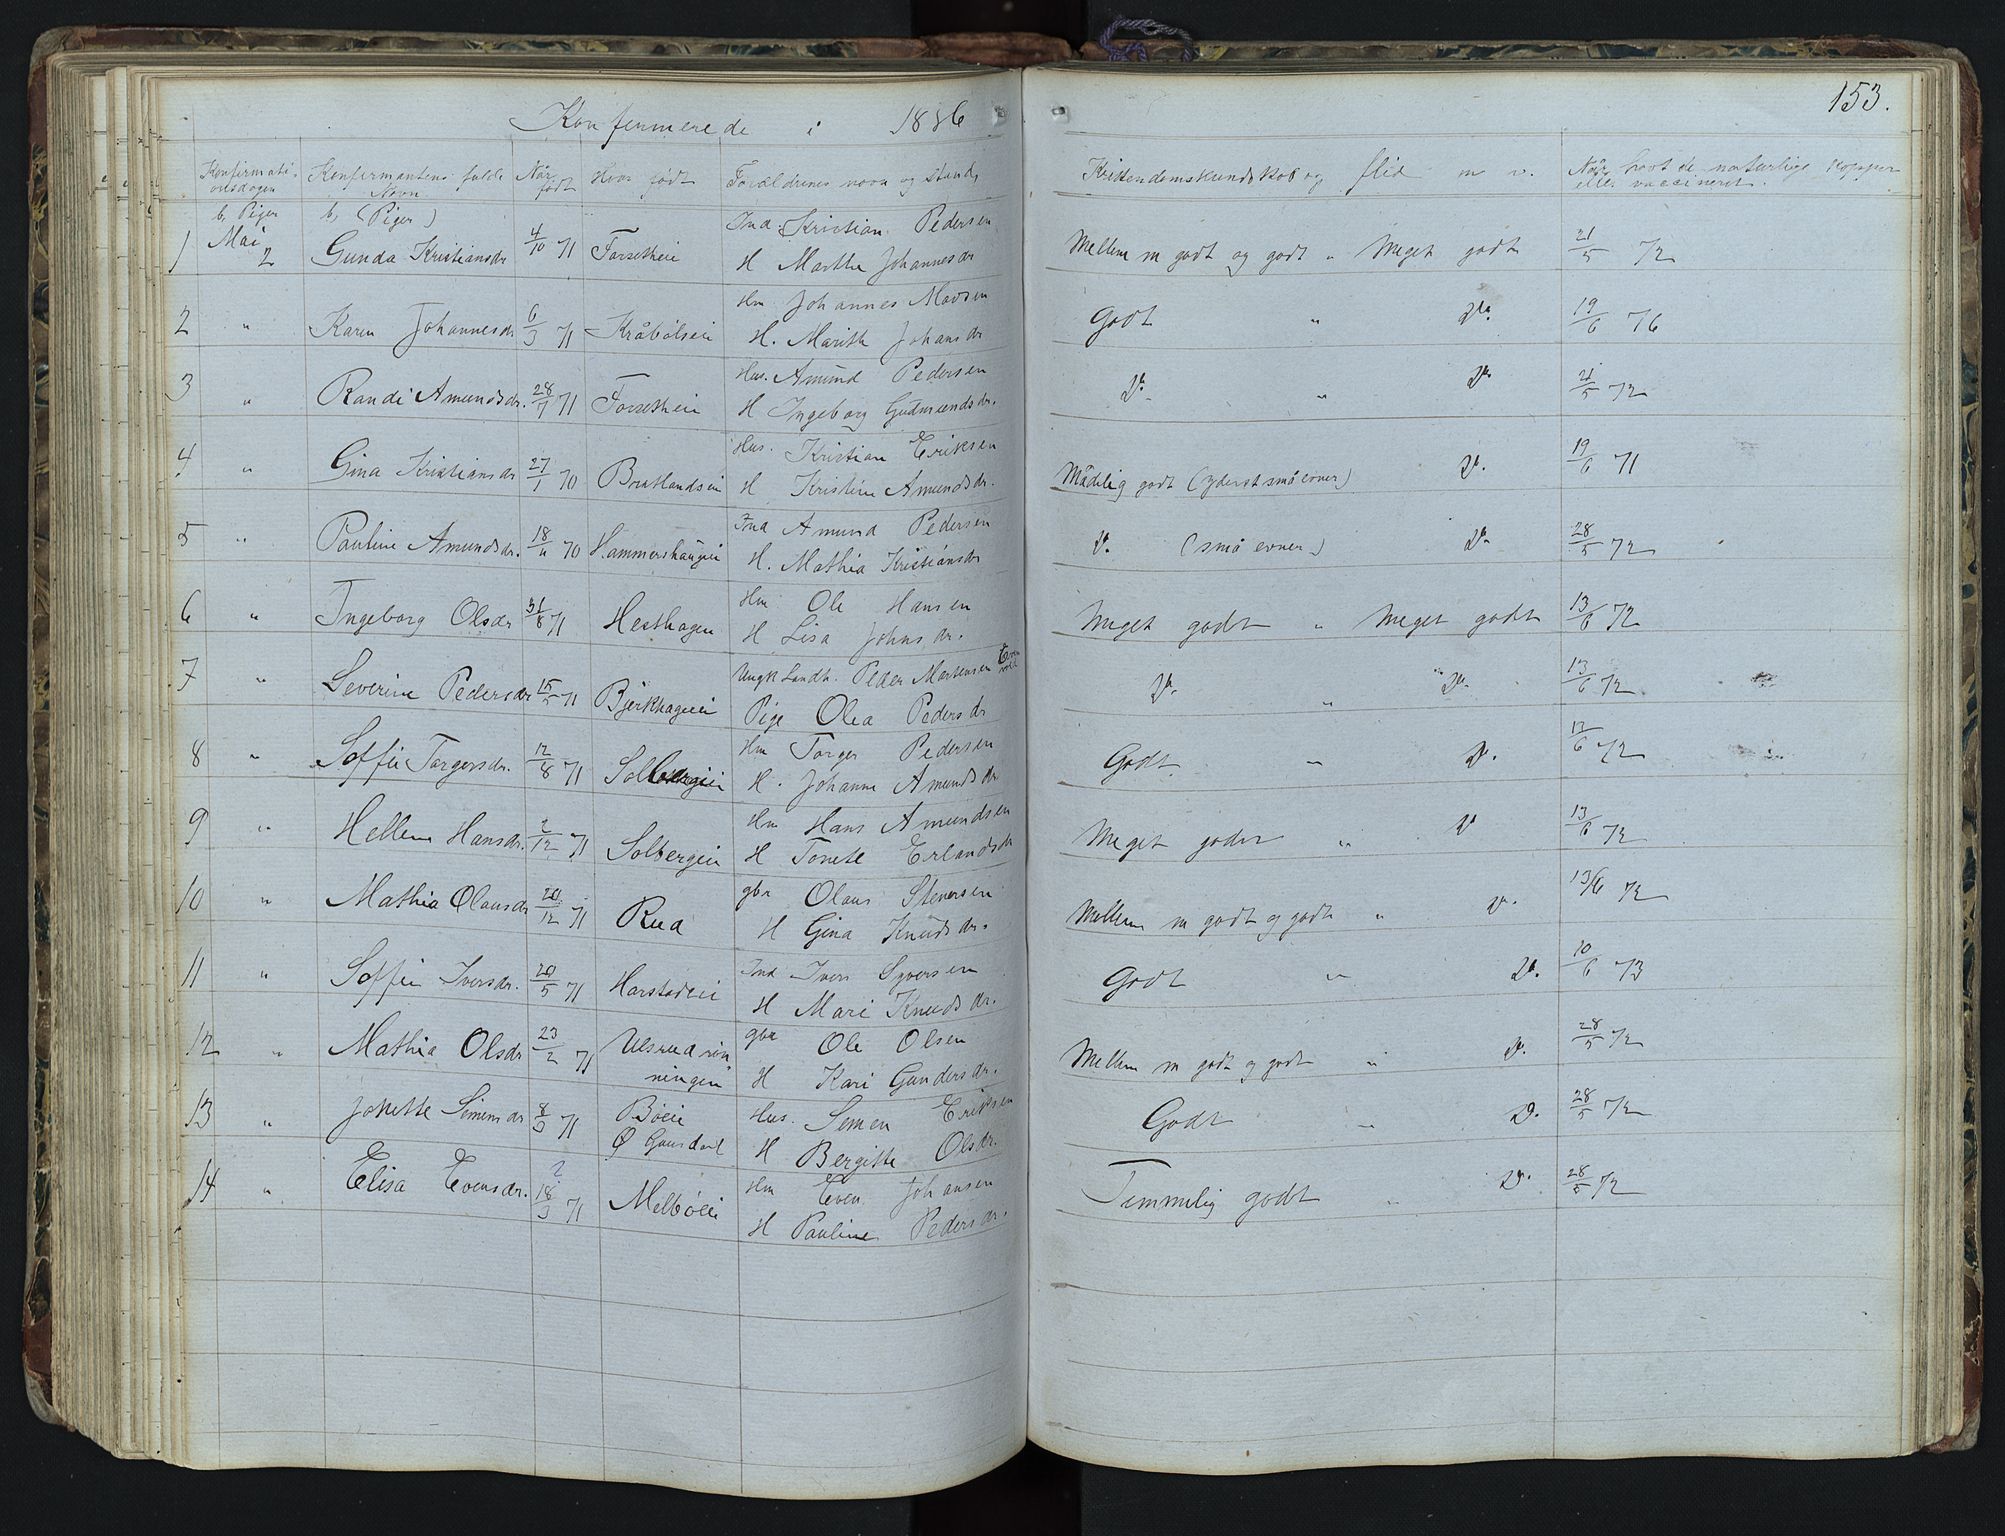 Konfirmerede i 1886
153.
Konfirmati- onsdagen Konfirmantens fulde Navn Når født Hvor født Forældrenes navn og stand Kristendomskundskab og flid m v. Når havt de naturlige Kopper eller vaccineret.
b, Piger b, (Piger)
1 Mai 2 Gunda Kristiansdr 4/10 71 Forsetheie Ind Kristian Pedersen Mellem m godt og godt " Meget godt 21/5 72
H Marthe Johannesdr
2 " Karen Johannesdr 6/3 71 Kråbølseie Hm Johannes Godt " Do. 19/6 76
H. Marith Johansdr
3 " Randi Amundsdr. 28/7 71 Forsetheie Hus. Amund Pedersen Do. " Do. 21/5 72
H Ingeborg Gudmundsdr.
4 " Gina Kristiansdr 27/1 70 Bratlandseie Hus. Kristian Eriksen Mådelig godt (yderst små evner) Do. 19/6 71
H Kristine Amundsdr.
5 " Pauline Amundsdr. 18/11 70 Hammershaugeie Ind Amund Pedersen Do. (små evner) Do. 28/5 72
H. Mathia Kristiansdr
6 " Ingeborg Olsdr 31/8 71 Hesthagen Hm Ole Hansen Meget godt " Meget godt 13/6 72
H Lisa Johnsdr.
7 " Severine Pedersdr 15/5 71 Bjerkhageeie Ungk Landh. Peder Mortensen Do. " Do. 13/6 72
Pige Olea Pedersdr
8 " Soffie Torgersdr. 12/8 71 Solbergeie Hm Torger Pedersen Godt " Do. 13/6 72
H. Johanne Amundsdr
9 " Hellene Hansdr. 2/12 71 Solbergeie Hm Hans Amundsen Meget godt " Do 13/6 72
H Tonete Erlandsdr
10 " Mathia Olausdr 20/12 71 Rud gbr Olaus Steversen Mellem m godt og godt " Do. 13/6 72
H Gina Knudsdr.
11 " Soffie Iversdr. 20/5 71 Harstadeie Ind Iver Syversen Godt " Do. 10/6 73
H Mari Knudsdr.
12 " Mathia Olsdr 23/2 71 Ulsrudrøn- ningen gbr Ole Olsen Mellem m godt og godt " Do. 28/5 72
H Kari Gundersdr.
13 " Jonette Simensdr 8/3 71 Bøeie Ø Gausdal Hus. Semen Eriksen Godt " Do. 28/5 72
H Bergitte Olsdr.
14 " Elisa Evensdr. ? 18/3 71 Melbøeie Hm Even Johansen Temmelig godt " Do. 28/5 72
H Pauline Pedersdr.